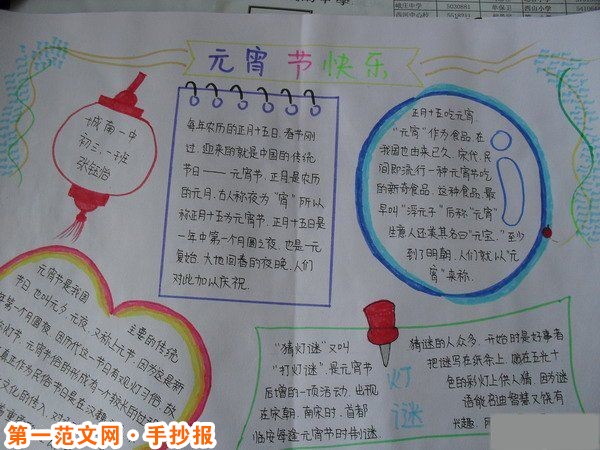 元宵节快乐
城南一中
初三、一班
张钰怡
每年农历的正月十五日,春节刚
过,迎来的就是中国的传统
节日——元宵节,正月是农历
的元月,古人称夜为“宵”所以
称正月十五为元宵节,正月十五日是
一年中第一个月圆之夜,也是一元
复始,大地回春的夜晚,人们
对此加以庆祝.
正月十五吃元宵.
“元宵”作为食品,在
我国也由来已久,宋代,民
间即流行一种元宵节吃
的新奇食品,这种食品,最
早叫“浮元子”后称“元宵”
生意人还美其名曰“元宝.”至少
到了明朝,人们就以“元
宵”来称.
元宵节是我国 主要的传统
节日,也叫元夕、元夜,又称上元节,因为这是新
年第一个月圆夜,因历代这一节日有观灯习俗,故
灯节,元宵节俗的形成有一个较长的过程
节日是在汉
“猜灯谜”又叫
“打灯谜”,是元宵节
后增的一项活动,出现
在宋朝,南宋时,首都
临安每逢元宵节时制谜,
灯谜
猜谜的人众多,开始时是好事者
把谜写在纸条上,贴在五光十
色的彩灯上供人猜,因为谜
语能启迪智慧又饶有
兴趣,
第一范文网·手抄报